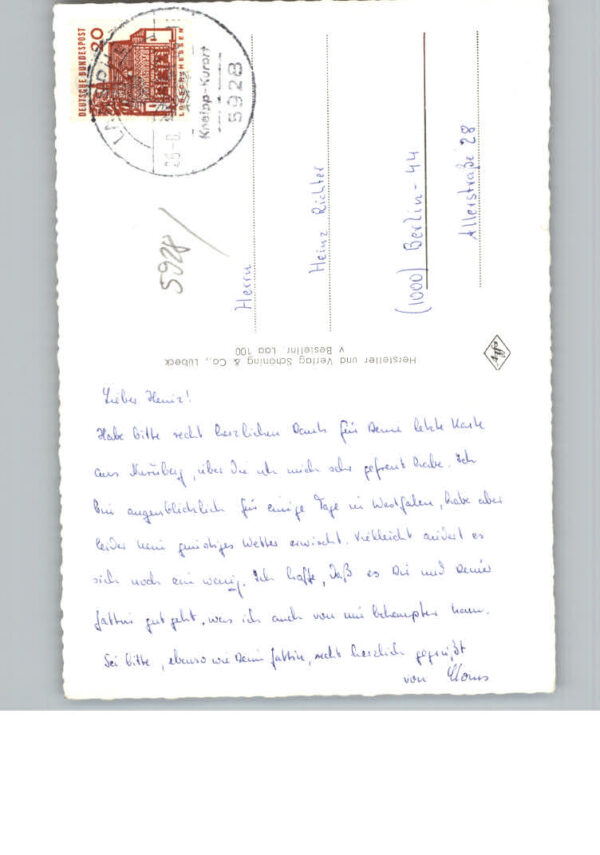 DEUTSCHE BUNDESPOST
20
LORSCH/HESSEN
Kneipp-Kurort
5928
5928
Herrn
Heinz Richter
(1000) Berlin - 44
Allerstraße 28
Hersteller und Verlag Schöning & Co., Lübeck
Bestellnr. Laa 100
Lieber Heinz!
Habe bitte recht herzlichen Dank für Deine letzte Karte
aus Nürnberg, über die ich mich sehr gefreut habe. Ich
bin augenblicklich für einige Tage in Westfalen, habe aber
leider kein günstiges Wetter erwischt. Vielleicht ändert es
sich noch ein wenig. Ich hoffe, daß es Dir und Deiner
Gattin gut geht, was ich auch von mir behaupten kann.
Sei bitte, ebenso wie Deine Gattin, recht herzlich gegrüßt
von